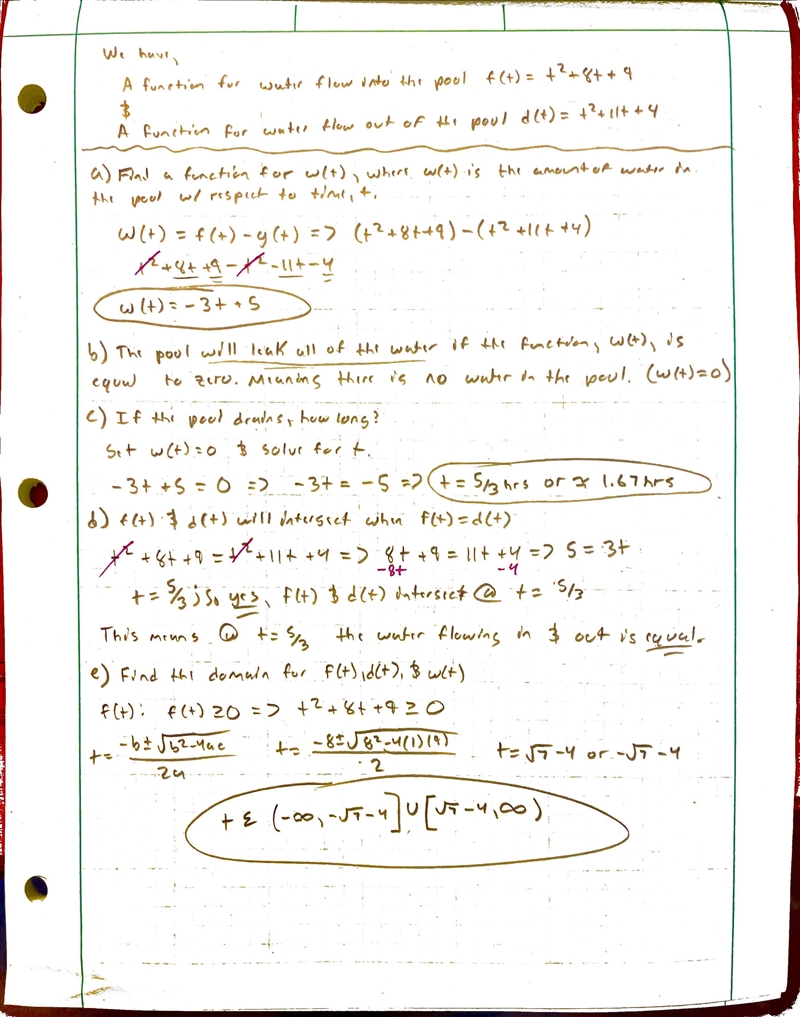 We have,
A function for water flow into the pool f(t) = t² + 8t + 9
&
A function for water flow out of the pool d(t) = t² + 11t + 4
a) Find a function for w(t), where w(t) is the amount of water in
the pool w/ respect to time, t.
w(t) = f(t) - g(t) => (t² + 8t + 9) - (t² + 11t + 4)
t² + 8t + 9 - t² - 11t - 4
w(t) = -3t + 5
b) The pool will leak all of the water if the function, w(t), is
equal to zero. Meaning there is no water in the pool. (w(t) = 0)
c) If the pool drains, how long?
Set w(t) = 0 & solve for t.
-3t + 5 = 0 => -3t = -5 => t = 5/3 hrs or ≈ 1.67 hrs
d) f(t) & d(t) will intersect when f(t) = d(t)
t² + 8t + 9 = t² + 11t + 4 => 8t + 9 = 11t + 4 => 5 = 3t
-8t -4
t = 5/3; so yes, f(t) & d(t) intersect @ t = 5/3
This means @ t = 5/3 the water flowing in & out is equal.
e) Find the domain for f(t), d(t), & w(t)
f(t): f(t) ≥ 0 => t² + 8t + 9 ≥ 0
t = -b ± √b² - 4ac / 2a t = -8 ± √8² - 4(1)(9) / 2 t = √7 - 4 or -√7 - 4
t ε (-∞, -√7 - 4] ∪ [√7 - 4, ∞)